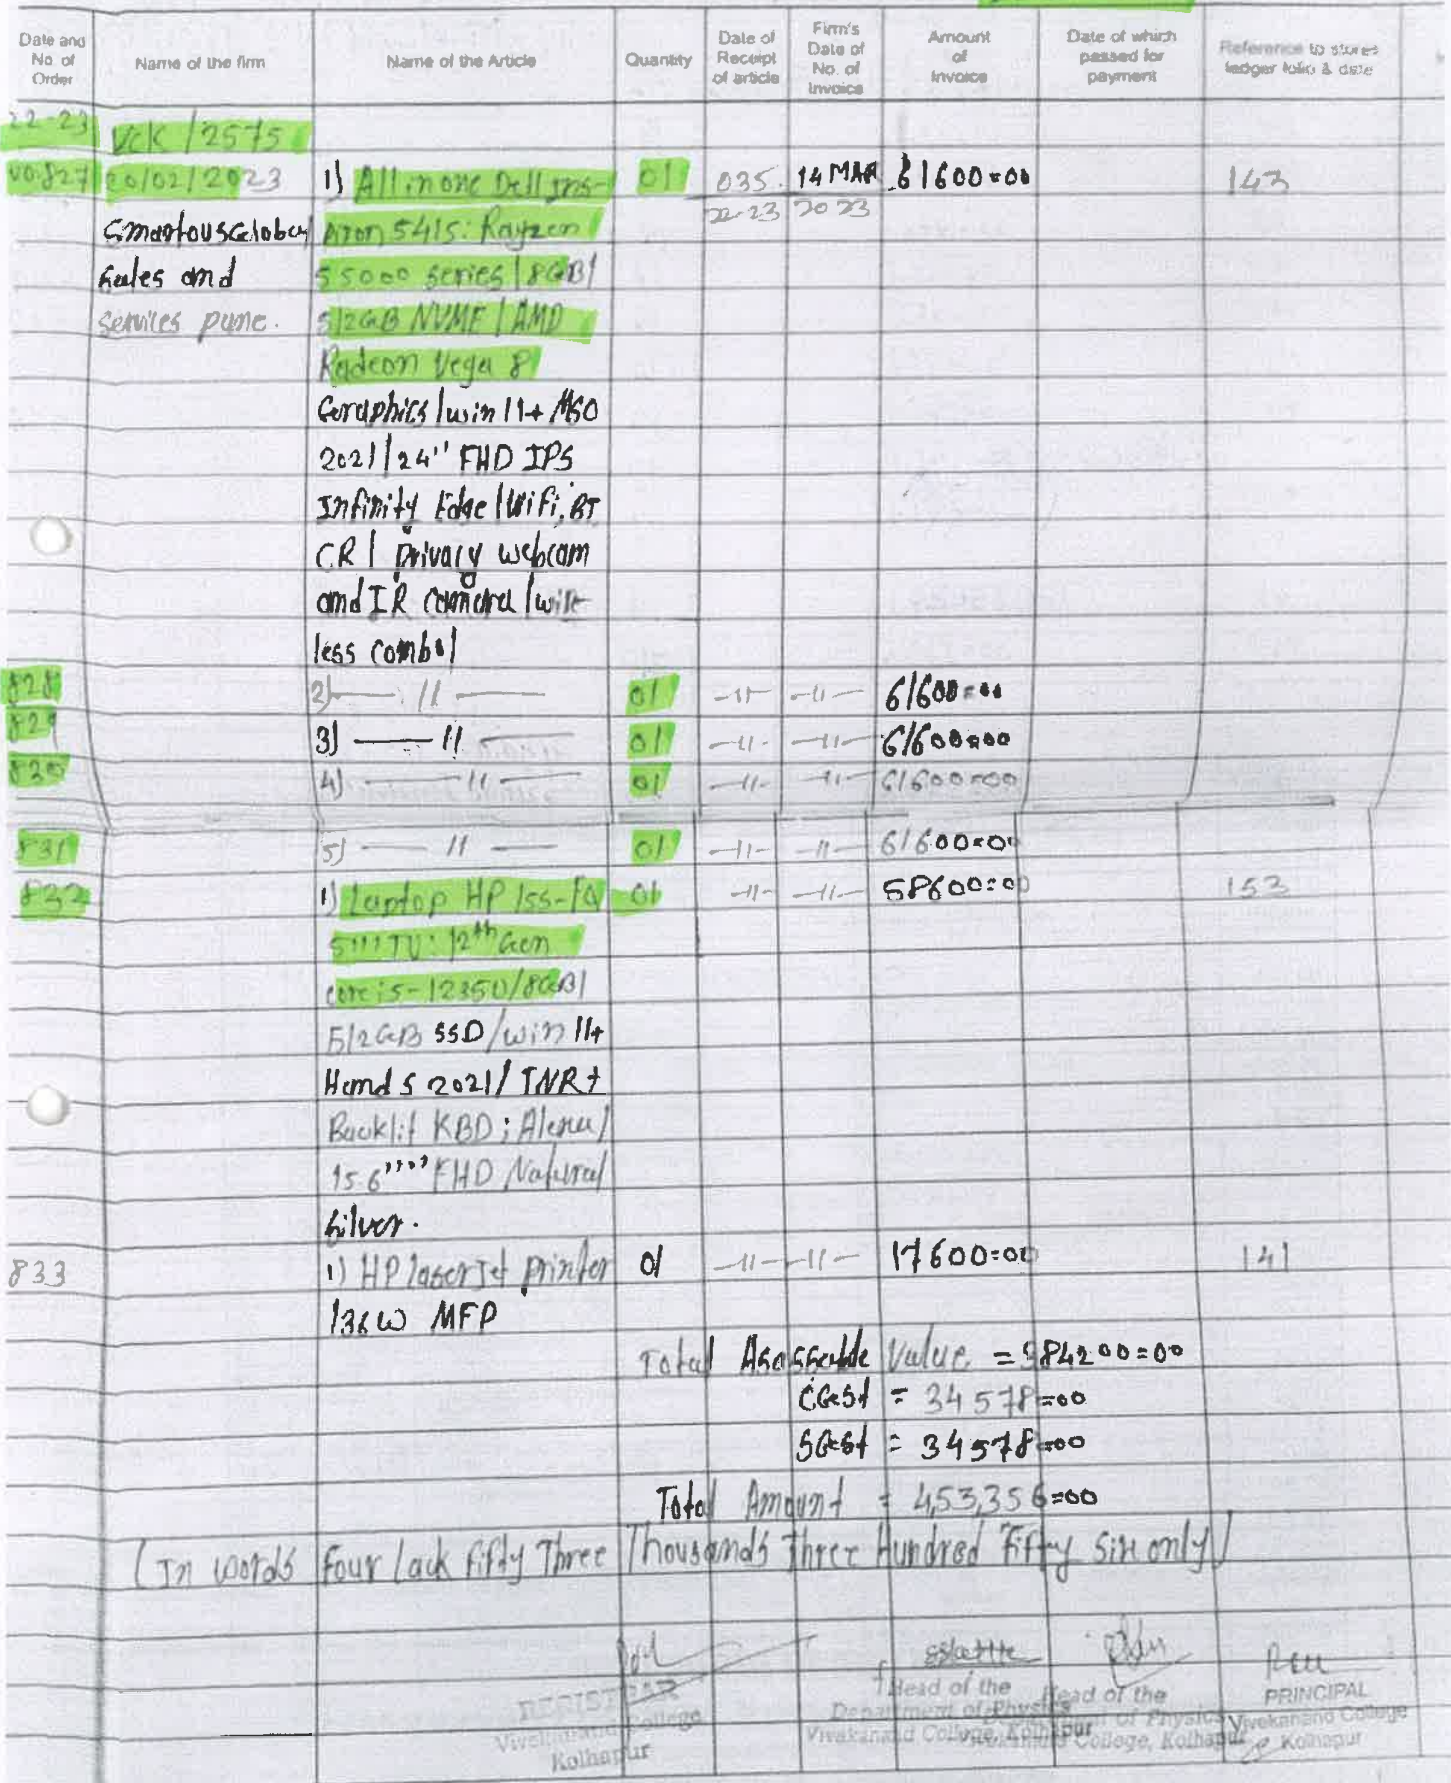 Date and No. of Order | Name of the firm | Name of the Article | Quantity | Date of Receipt of article | Firm's Date of No. of Invoice | Amount of Invoice | Date of which passed for payment | Reference to stores ledger folio & date
22-23 VCK / 2575
vo.827 20/02/2023 1) All in one Dell Ins- 01 035 14 MAR 61600=00 143
22-23 2023
Smartous Global piron 5415: Rayzen
Sales and 5 5000 series / 8GB /
Services pune. 512GB NVME / AMD
Radeon Vega 8
Geraphics / win 11+ MSO
2021 / 24" FHD IPS
Infinity Edge / Wifi, BT
CR / Privacy webcam
and IR camera / wire
less combo /
828 2) — 11 — 01 -11- -11- 61600=00
829 3) — 11 — 01 -11- -11- 61600=00
830 4) — 11 — 01 -11- -11- 61600=00
831 5) — 11 — 01 -11- -11- 61600=00
832 1) Laptop HP 15s-fQ 01 -11- -11- 58600=00 153
5111TU: 12th Gen
core i5-1235U/8GB/
512GB SSD/win 11+
Hand S 2021/ INR+
Backlit KBD; Alexa/
15.6"" FHD Natural
Silver.
833 1) HP laserJet printer 01 -11- -11- 17600=00 141
136w MFP
Total Value = 384200=00
CGst = 34578=00
SGst = 34578=00
Total Amount = 4,53,356=00
(In words Four lack fifty Three Thousands Three Hundred Fifty Six only)
REGISTRAR
Vivekanand College
Kolhapur
Head of the
Department of Physics
Vivekanand College, Kolhapur
Head of the
of Physics
College, Kolhapur
PRINCIPAL
Vivekanand College
Kolhapur